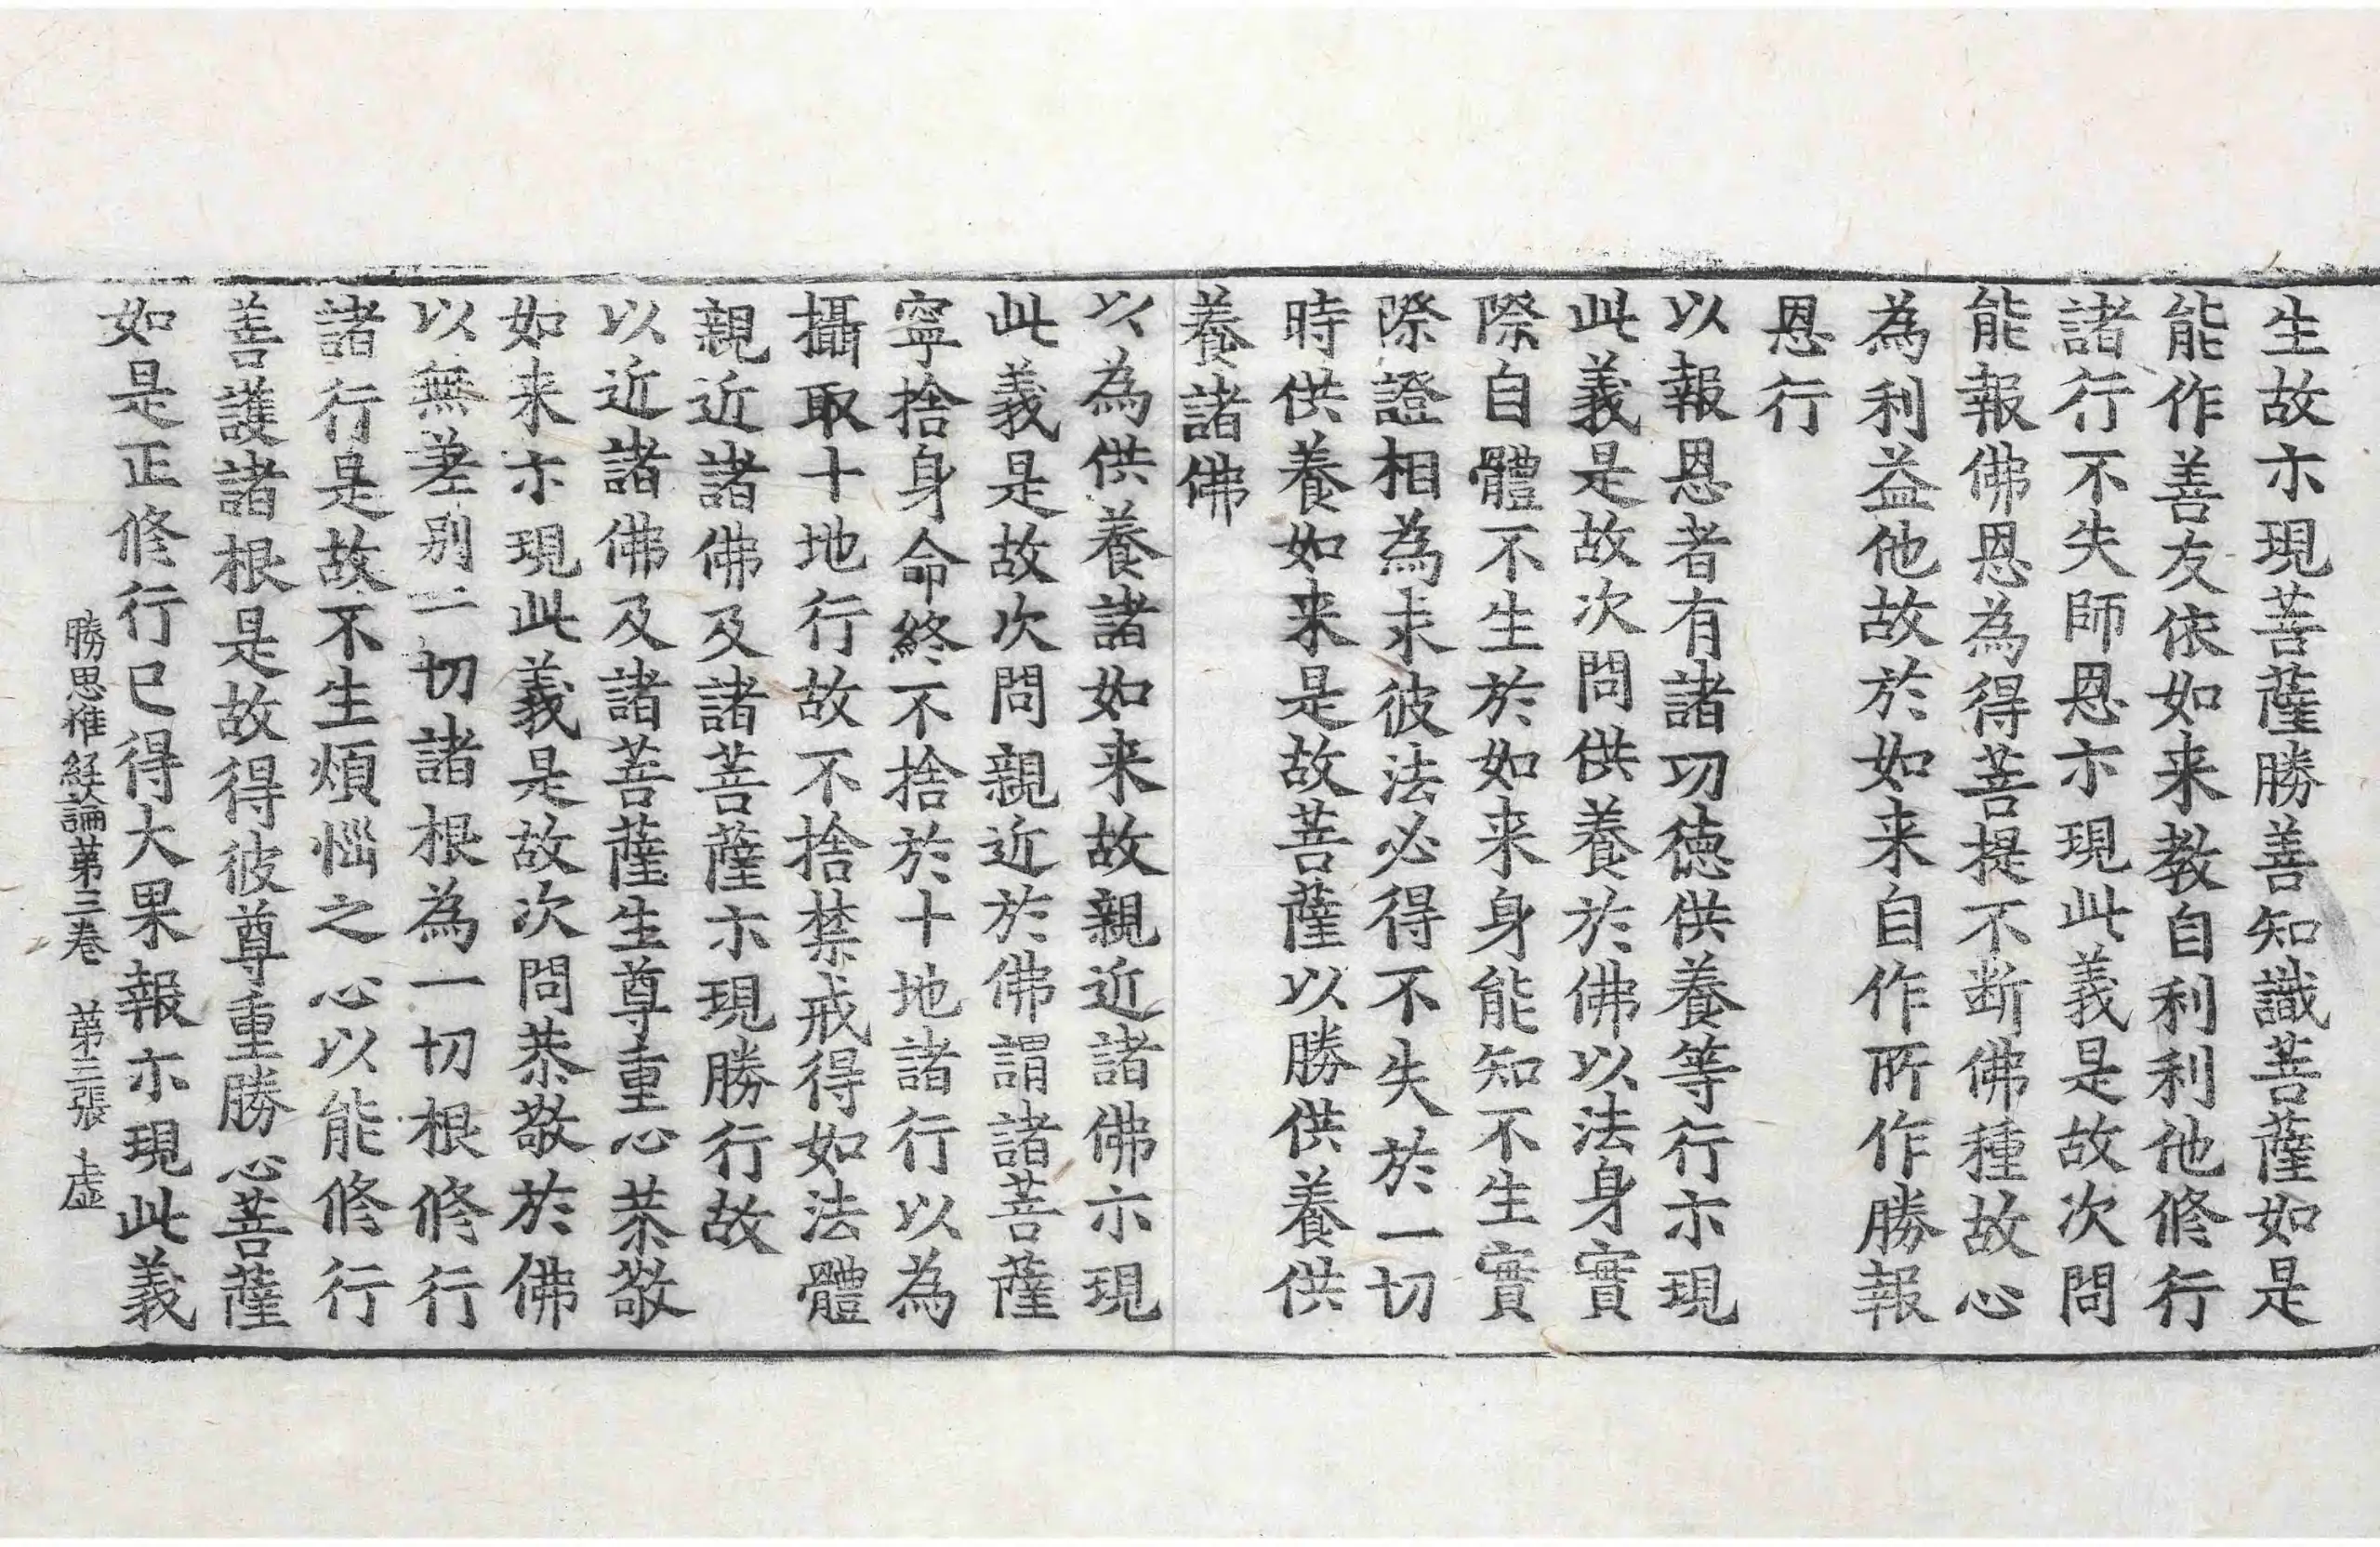 生故亦現菩薩勝善知識菩薩如是
能作善友依如来教自利利他修行
諸行不失師恩亦現此義是故次問
能報佛恩為得菩提不断佛種故心
為利益他故於如来自作所作勝報
恩行
以報恩者有諸功徳供養等行亦現
此義是故次問供養於佛以法身實
際自體不生於如来身能知不生實
際證相為求彼法必得不失於一切
時供養如来是故菩薩以勝供養供
養諸佛
以為供養諸如来故親近諸佛亦現
此義是故次問親近於佛謂諸菩薩
寧捨身命終不捨於十地諸行以為
攝取十地行故不捨禁戒得如法體
親近諸佛及諸菩薩亦現勝行故
以近諸佛及諸菩薩生尊重心恭敬
如来亦現此義是故次問恭敬於佛
以無差别一切諸根為一切根修行
諸行是故不生煩惱之心以能修行
善護諸根是故得彼尊重勝心菩薩
如是正修行已得大果報亦現此義
勝思惟經論第三卷 第三張 虚